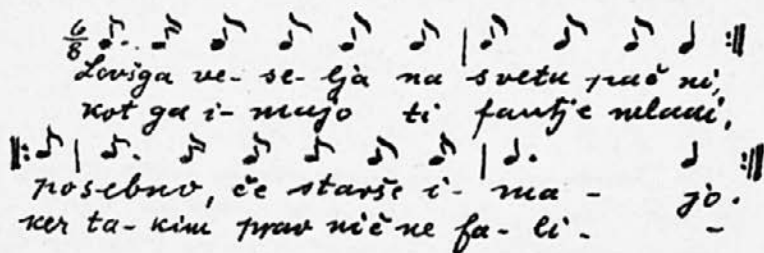 6/8
ve- se- lja na svetu pač ni,
kot ga i- majo ti fantje mladi,
posebno, če starše i- ma - jo.
ker ta- kim prav nič ne fa- li- -